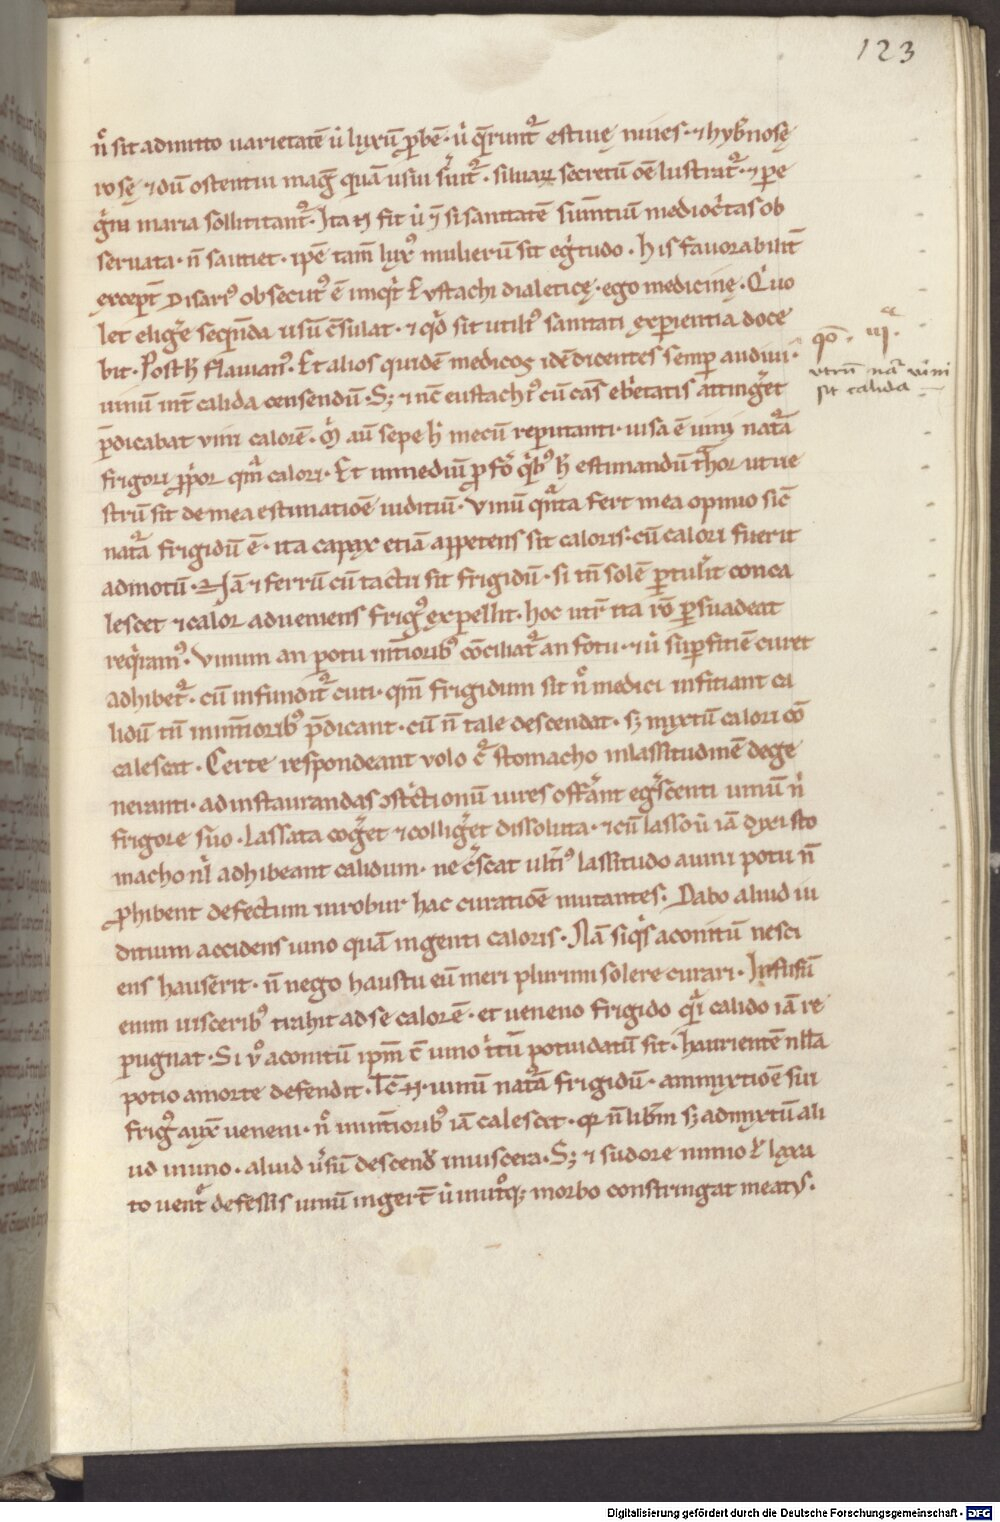 123
n̊ sit admitto uarietatē ł luxū p̄bē · ł q̄runt᷑ estiuę niues · ⁊ hybnosę
rosę ⁊ dū ostentui mag̅ quā usui s̅uit᷑ · siluaꝝ secretū oē lustrat᷑ · ⁊ pe
g̅na maria sollititant᷑ · Ita ⁊ fit ł si sanitatē sum̄tiū mediocͥtas ob
seruata · n̄ sautiet · ipē tam̄ lux᷒ mulierū sit eg̅tudo · his fauorabilit̄
except̄ Disari᷒ obsecut᷒ ē inqͥt Eustachi dialeticę · ego medicinę · Q̇ uo
let elig̅e seq̄nda usū c̄sulat · ⁊ qd̄ sit utili᷒ sanitati experientia doce
bit · Posth̄ Flauian᷒ · Et alios quidē medicos idē dicentes semꝑ audiui ·
uinū int̄ calida censendū · S; ⁊ nc̄ eustachi᷒ cū cās ebͥetatis atting̅et
p̄dicabat vini calorē · M̊ aū sepe h̄ mecū reputanti · uisa ē uini nat᷑a
frigori ꝓpior qm̄ calori · Et inmediū ꝓfō qͥb᷒ h̄ estimandū t̄hor ut ue
strū sit de mea estimatiōē iuditiū · Vinū qn̄ta fert mea opinio sic̄
nat᷑a frigidū ē · ita capax etiā appetens sit caloris · cū calori fuerit
admotū · Nā ⁊ ferrū cū tactu sit frigidū · si tn̄ solē ꝑtulit conca
lescet ⁊ calor adueniens frig᷒ expellit · hoc utr̄ ita rō ꝑsuadeat
reqͥram᷒ · Vinum an potu int̄iorib᷒ cōciliat᷑ an fotu · ⁊ ł suꝑfitiē curet
adhibet᷑ · cū infundit᷑ cuti · qm̄ frigidum sit n̊ medici infitiant ca
lidū tn̄ inint̄iorib᷒ p̄dicant · cū n̄ tale descendat · s; mixtū calori cō
calescat · Certe respondeant volo c᷑ stomacho inlassitudinē dege
neranti · ad instaurandas ↄstͥctionū uires offerāt eg̅scenti uinū nͥ
frigore suo · lassata cog̅et ⁊ collig̅et dissoluta · ⁊ cū lasso ł iā dixi sto
macho nͥl adhibeant calidum · ne cͥscat ult̄i᷒ lassitudo auini potu n̄
ꝓhibent defectum inrobur hac curatiōē mutantes · Dabo aliud in
ditium accidens uino quā ingeniti caloris · Nā siqͥs aconitū nesci
ens hauserit · n̄ nego haustu eū meri plurimi solere curari · Infusū
enim uiscerib᷒ trahit ad se calorē · et ueneno frigido qͣi calido iā re
pugnat · Si v̊ aconitū ipm̄ c̄ uino tͥtū potui datū sit · haurientē nll̄a
potio amorte defendit · uinū nat᷑a frigidū · ammixtiōē sui
frig᷒ auxͭ ueneni · n̊ inint̄iorib᷒ iā calescet · q̄ n̄ lib̄m s; admixtū ali
ud inuino · aliud ūsū descendͭ inuiscera · S; ⁊ sudore nimio ł laxa
to uent᷑ defessis uinū ingert̄ ł inutͦq; morbo constringat meatus ·
qo̅ · iijᵃ
vtrū nāᵃ vini
sit calida
Digitalisierung gefördert durch die Deutsche Forschungsgemeinschaft - DFG